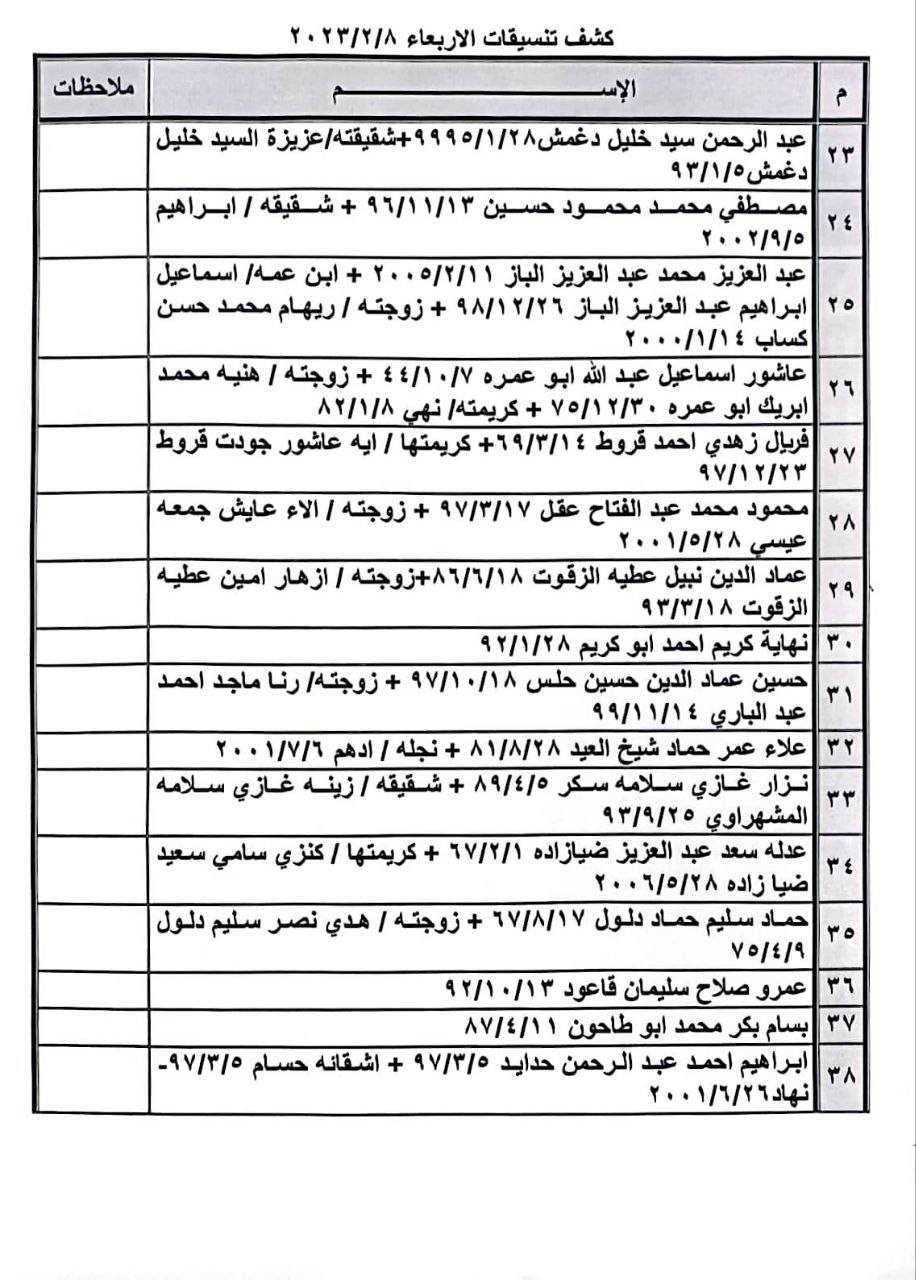 كشف تنسيقات الاربعاء ٢٠٢٣/٢/٨
م الإســـــم ملاحظات
٢٣ عبد الرحمن سيد خليل دغمش٩٩٩٥/١/٢٨+شقيقته/عزيزة السيد خليل
دغمش٩٣/١/٥
٢٤ مصطفي محمد محمود حسين ٩٦/١١/١٣ + شقيقه / ابراهيم
٢٠٠٢/٩/٥
٢٥ عبد العزيز محمد عبد العزيز الباز ٢٠٠٥/٢/١١ + ابن عمه/ اسماعيل
ابراهيم عبد العزيز الباز ٩٨/١٢/٢٦ + زوجته / ريهام محمد حسن
كساب ٢٠٠٠/١/١٤
٢٦ عاشور اسماعيل عبد الله ابو عمره ٤٤/١٠/٧ + زوجته / هنيه محمد
ابريك ابو عمره ٧٥/١٢/٣٠ + كريمته/ نهي ٨٢/١/٨
٢٧ فريال زهدي احمد قروط ٦٩/٣/١٤+ كريمتها / ايه عاشور جودت قروط
٩٧/١٢/٢٣
٢٨ محمود محمد عبد الفتاح عقل ٩٧/٣/١٧ + زوجته / الاء عايش جمعه
عيسي ٢٠٠١/٥/٢٨
٢٩ عماد الدين نبيل عطيه الزقوت ٨٦/٦/١٨+زوجته / ازهار امين عطيه
الزقوت ٩٣/٣/١٨
٣٠ نهاية كريم احمد ابو كريم ٩٢/١/٢٨
٣١ حسين عماد الدين حسين حلس ٩٧/١٠/١٨ + زوجته/ رنا ماجد احمد
عبد الباري ٩٩/١١/١٤
٣٢ علاء عمر حماد شيخ العيد ٨١/٨/٢٨ + نجله / ادهم ٢٠٠١/٧/٦
٣٣ نزار غازي سلامه سكر ٨٩/٤/٥ + شقيقه / زينه غازي سلامه
المشهراوي ٩٣/٩/٢٥
٣٤ عدله سعد عبد العزيز ضيازاده ٦٧/٢/١ + كريمتها / كنزي سامي سعيد
ضيا زاده ٢٠٠٦/٥/٢٨
٣٥ حماد سليم حماد دلول ٦٧/٨/١٧ + زوجته / هدي نصر سليم دلول
٧٥/٤/٩
٣٦ عمرو صلاح سليمان قاعود ٩٢/١٠/١٣
٣٧ بسام بكر محمد ابو طاحون ٨٧/٤/١١
٣٨ ابراهيم احمد عبد الرحمن حدايد ٩٧/٣/٥ + اشقائه حسام ٩٧/٣/٥-
نهاد٢٠٠١/٦/٢٦